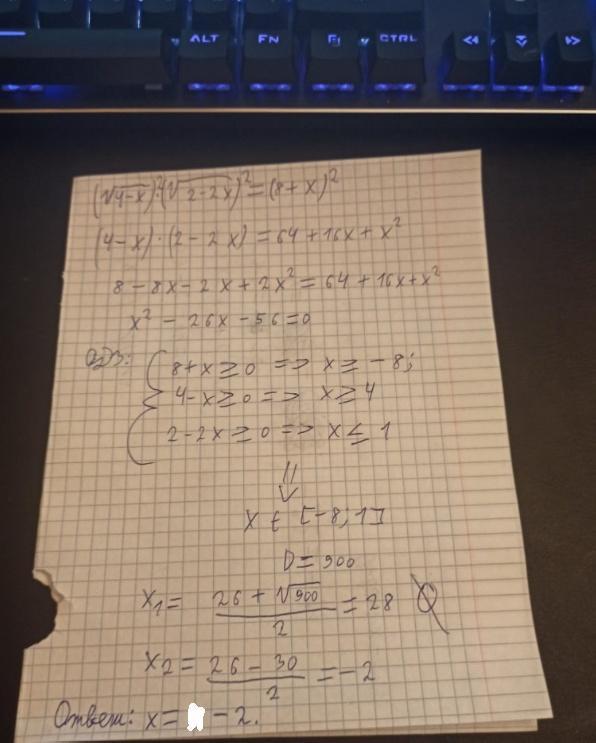 ALT FN CTRL
(√4-x)²·(√2-2x)² = (8+x)²
(4-x)·(2-2x) = 64+16x+x²
8-8x-2x+2x² = 64+16x+x²
x²-26x-56=0
ОДЗ:
8+x≥0 => x≥-8;
4-x≥0 => x≥4
2-2x≥0 => x≤1
x ∈ [-8;1]
D=900
x₁= (26+√900)/2 = 28 ∅
x₂= (26-30)/2 = -2
Ответ: x= -2.